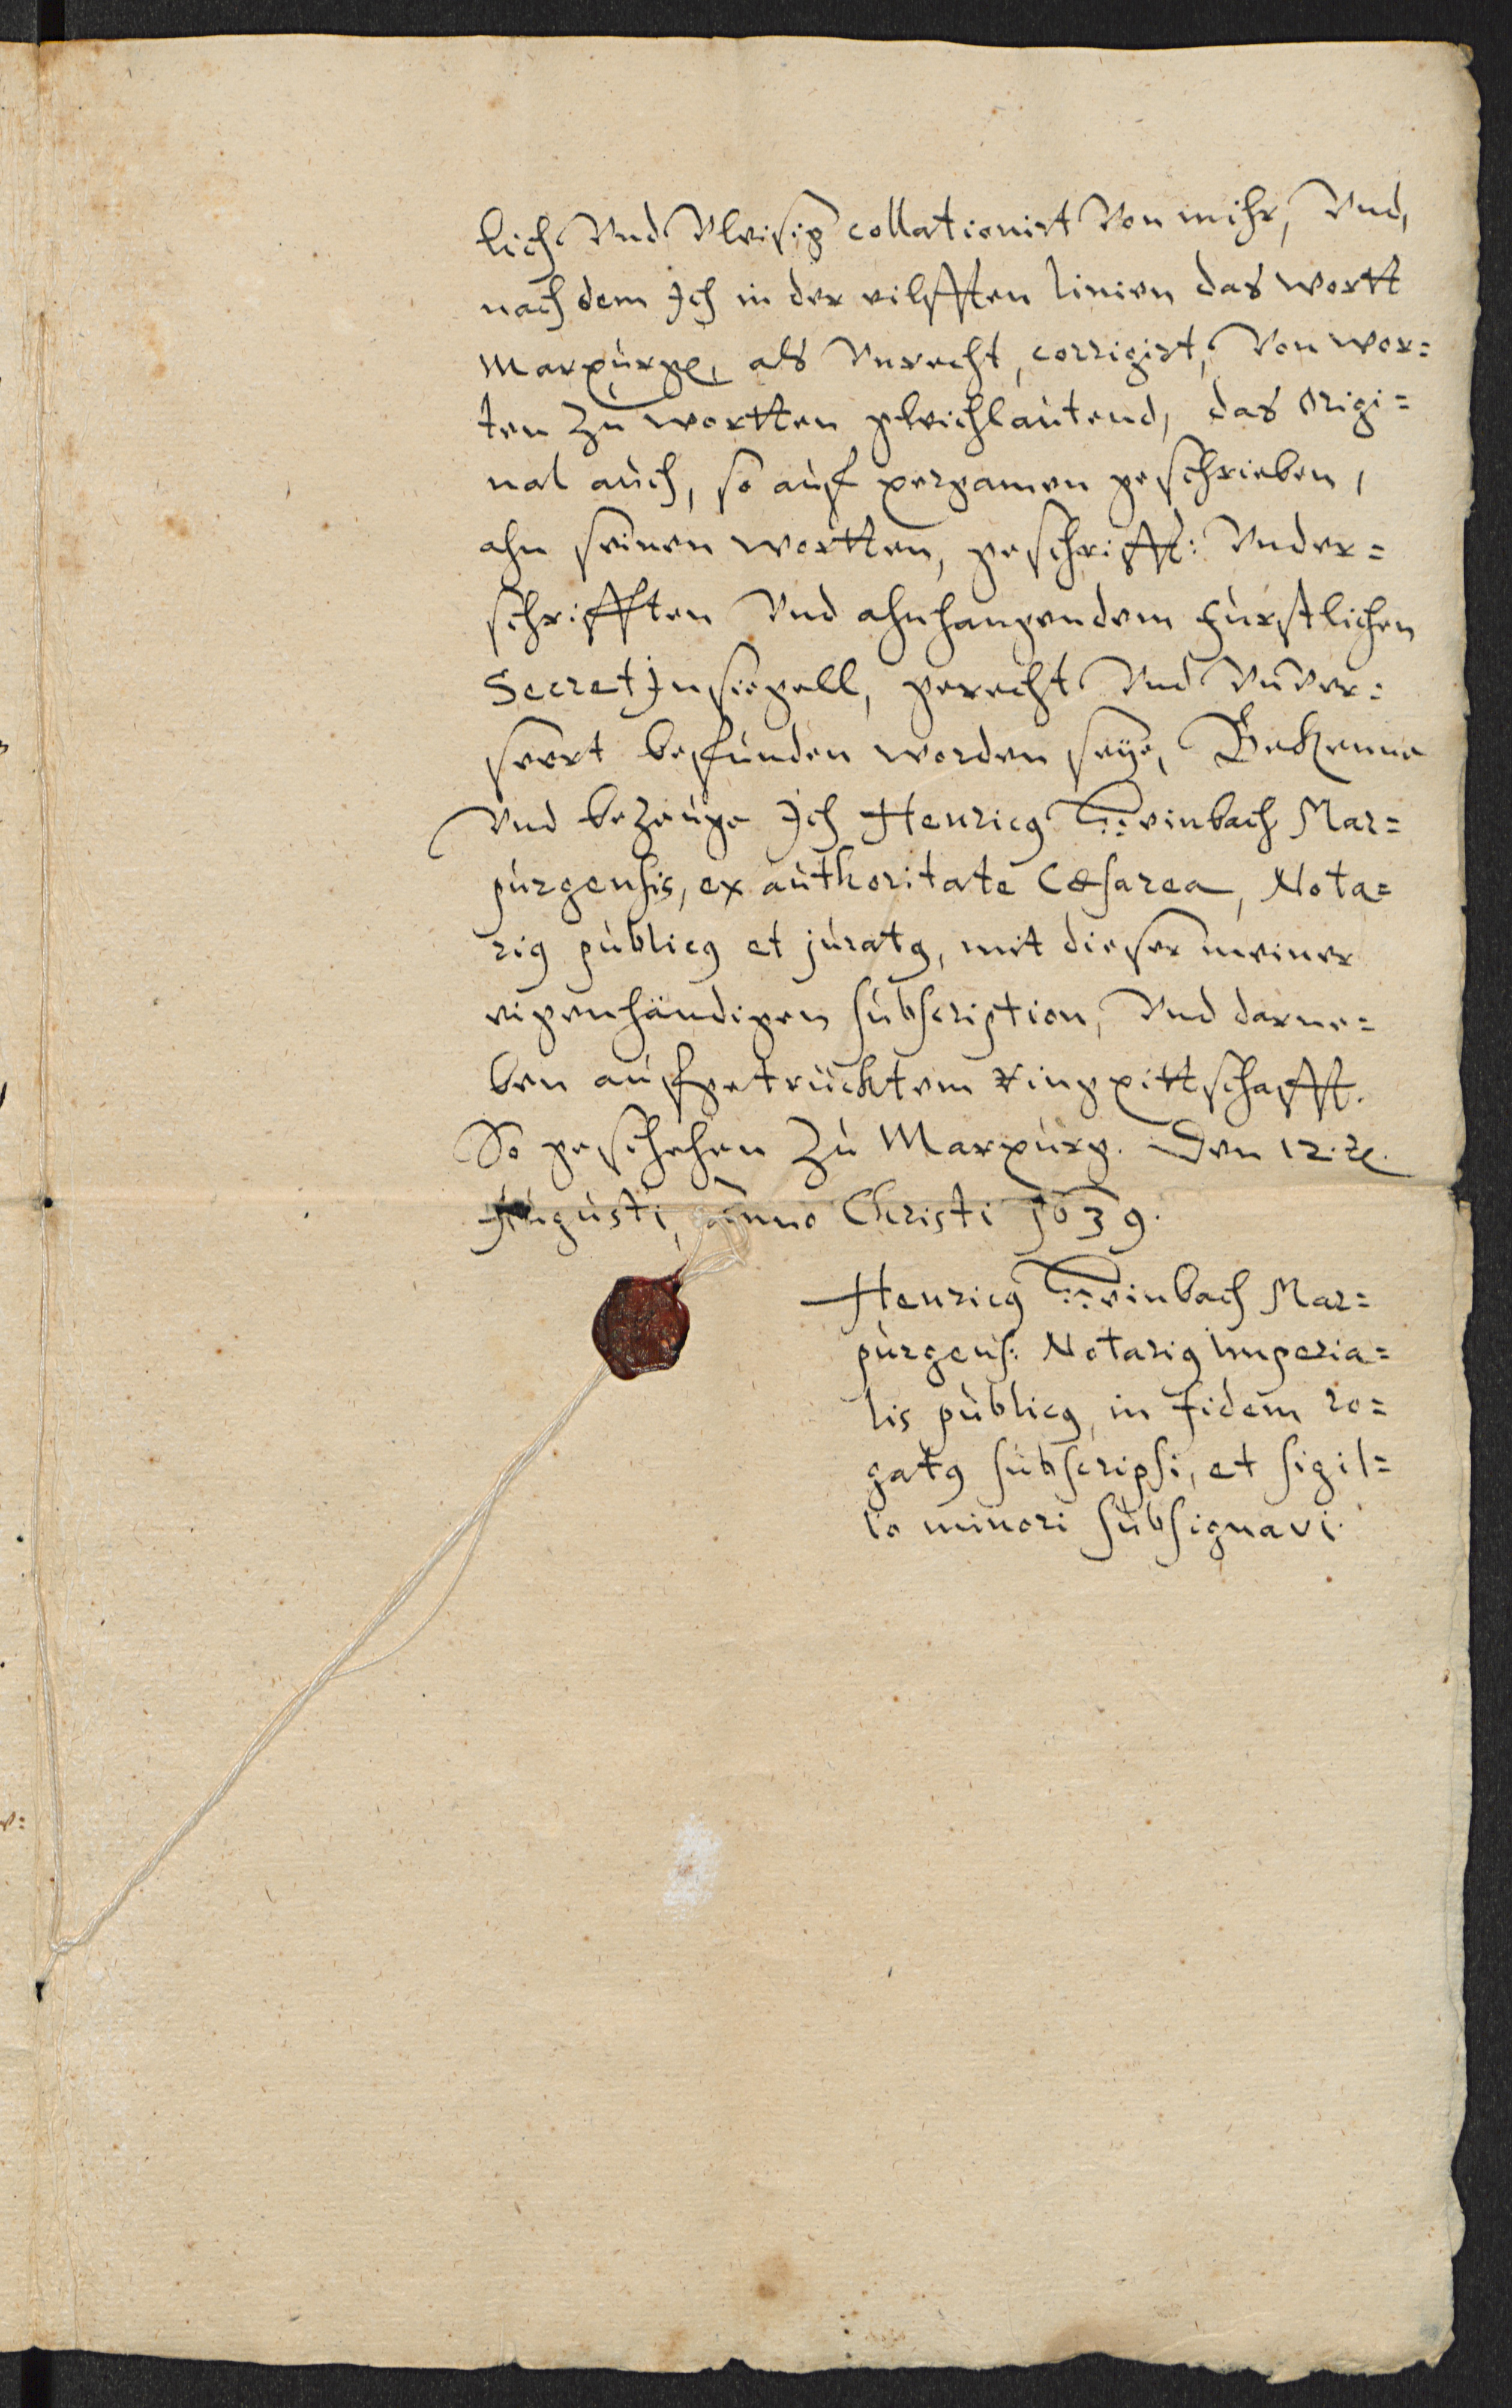 lich Vnd Vleisig collationirt Von mihr, Vnd,
nach dem Ich in der eilfften linien das wortt
Marpurge, als Vnrecht, corrigirt, Von wor=
ten zu wortten gleichlautend, das Origi=
nal auch, so auf pergamen geschrieben,
ahn seinen wortten, geschrifft: Vnder=
schrifften Vnd ahnhangendem Fürstlichen
Secret Insiegell, gerecht Vnd Vnver=
seert befunden worden seye, Bekenne
Vnd bezeuge Ich Henricus bach Mar=
purgensis, ex authoritate Cæsarea, Nota=
rius publicus et juratus, mit dieser meiner
eigenhändigen subscription, Vnd darne=
ben aufgetrücktem ringpittschafft.
So geschehen zu Marpurg. Den 12.
Augusti, anno Christi 1639.
Henricus bach Mar=
purgens: Notarius Imperia=
lis publicus, in fidem ro=
gatus subscripsi, et sigil=
lo minori subsignavi.